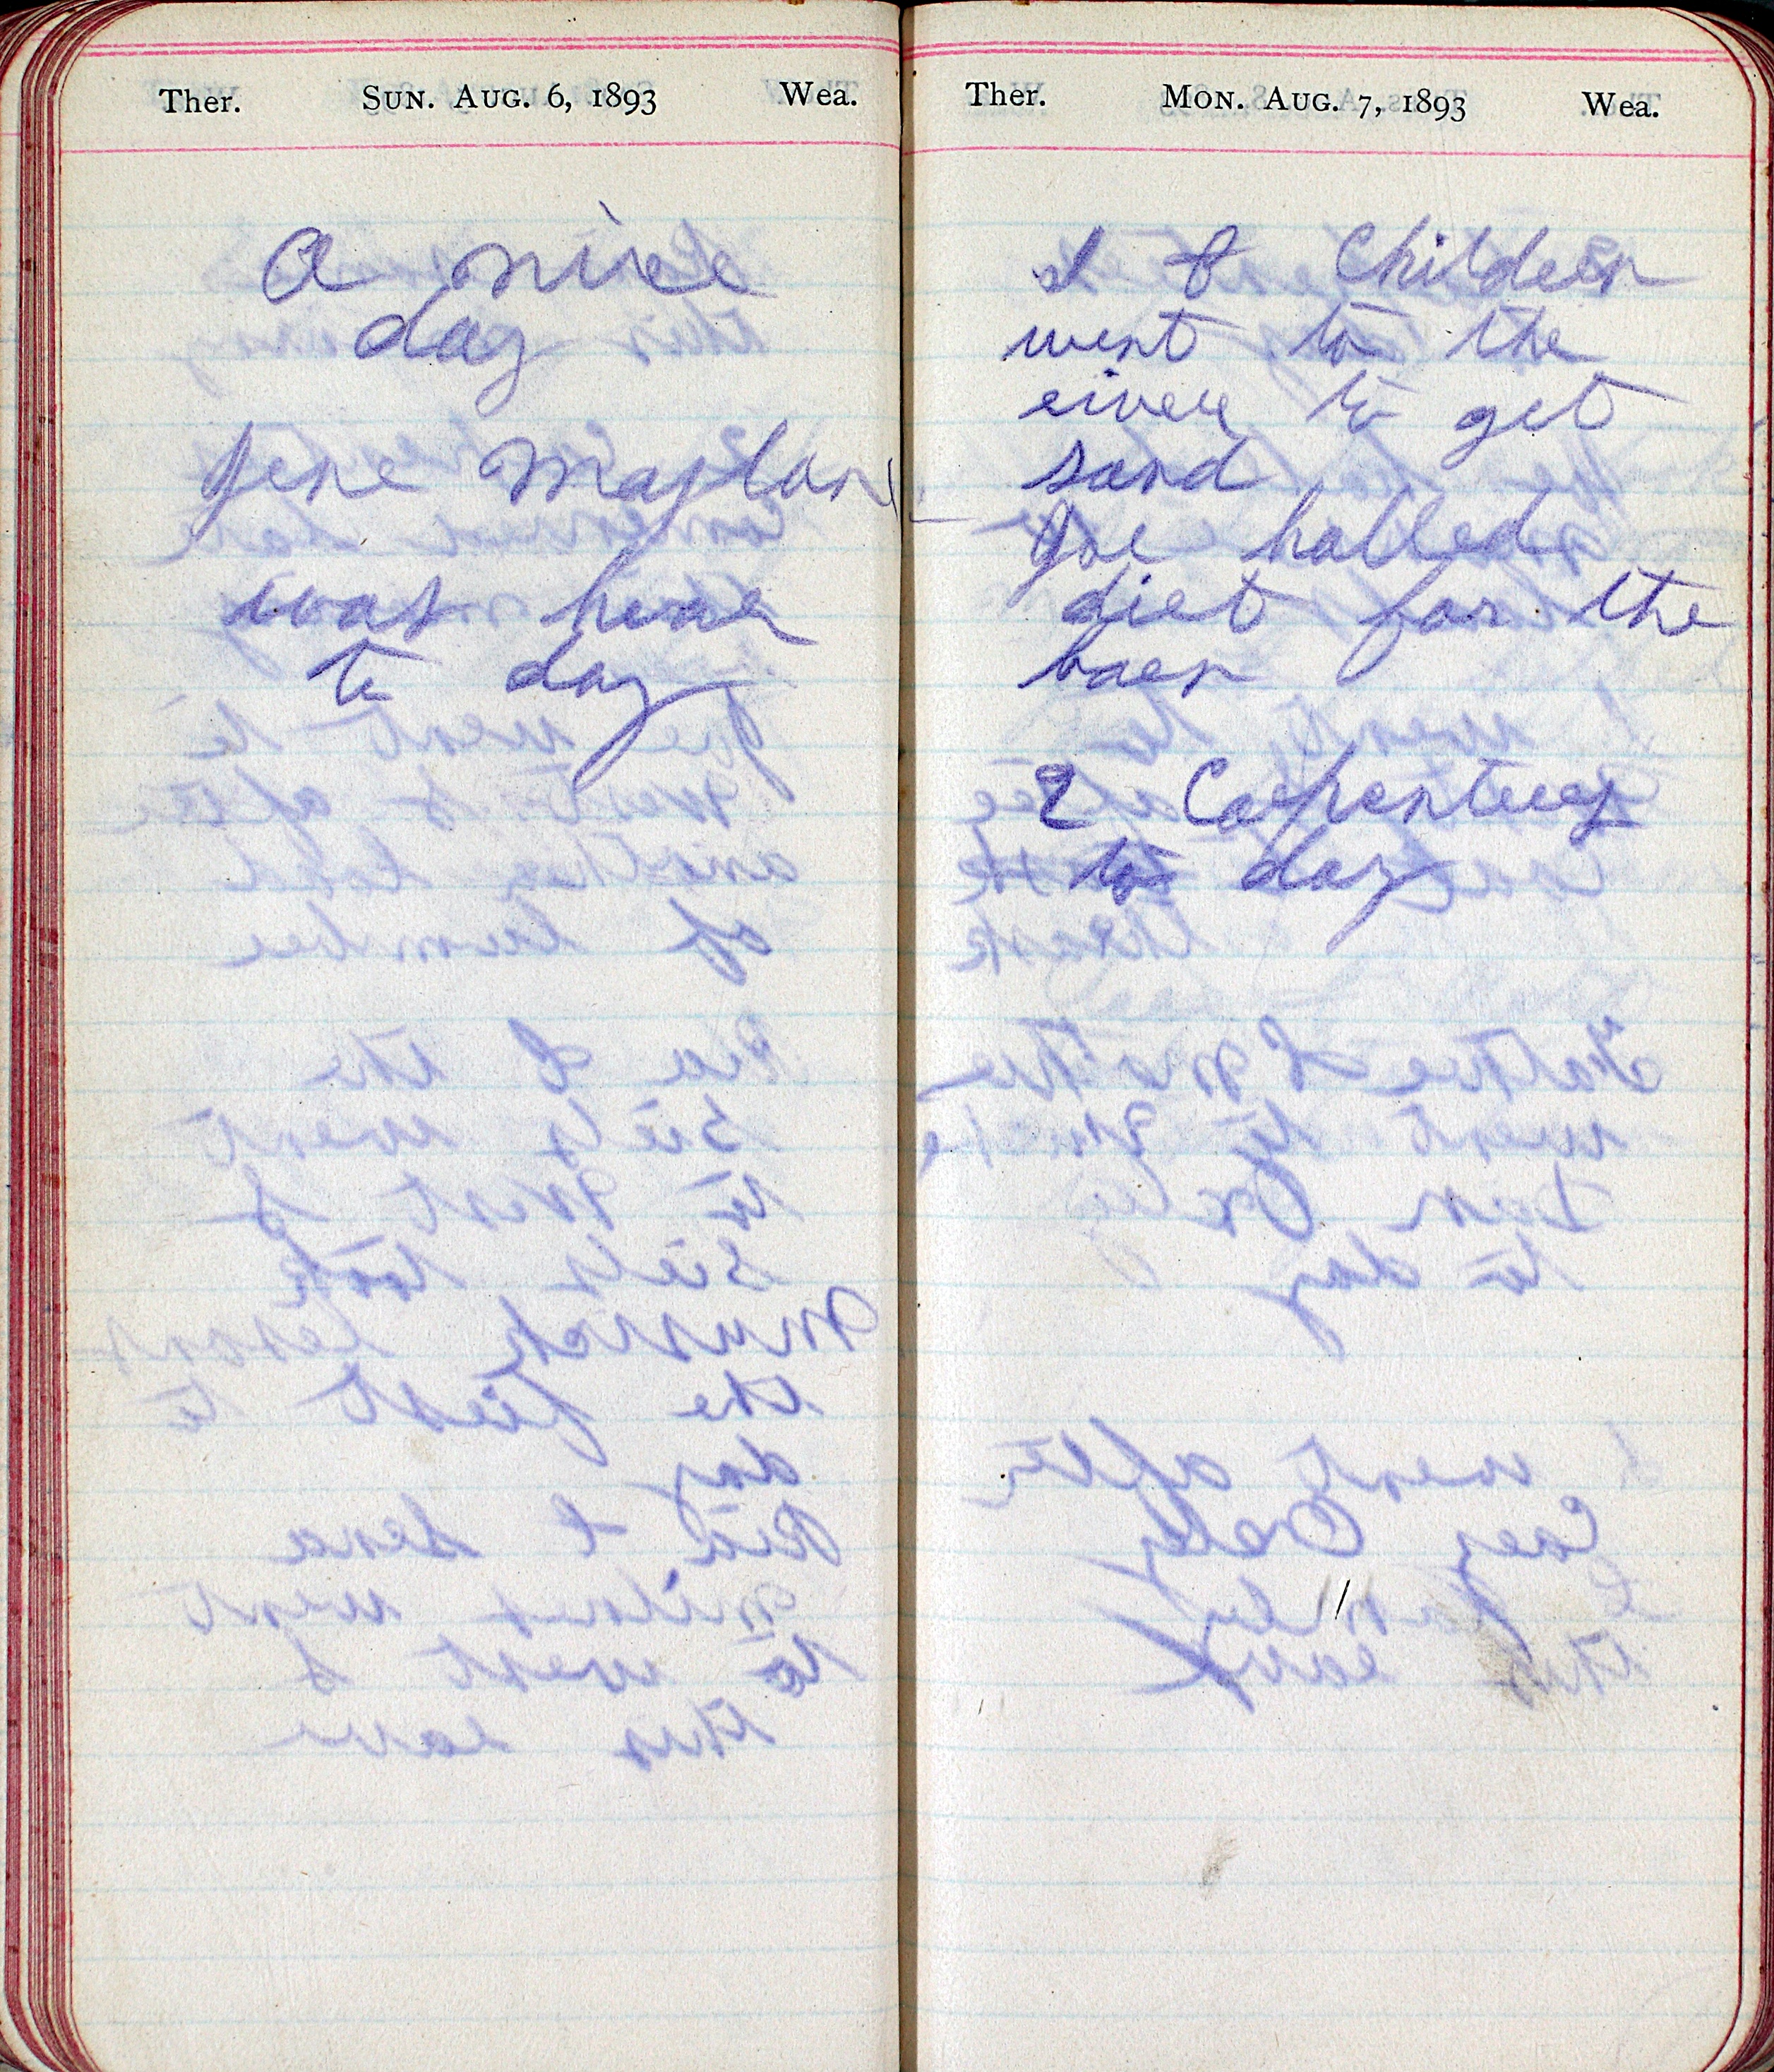 Ther. Sun. Aug. 6, 1893 Wea.
A nice
day
Jene
was hear
to day
Ther. Mon. Aug. 7, 1893 Wea.
I & Children
went to the
river to get
sand
Joe halled
dirt for the
barn
2 Carpenters
to day